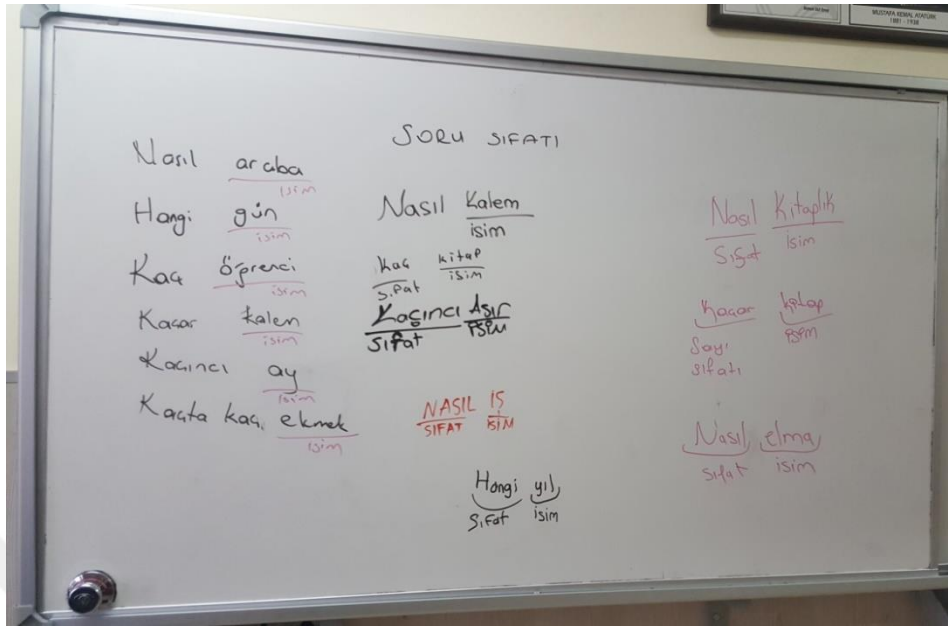 MUSTAFA KEMAL ATATÜRK
1881 - 1938
SORU SIFATI
Nasıl araba
isim
Hangi gün
isim
Kaç öğrenci
isim
Kaçar kalem
isim
Kaçıncı ay
isim
Kaçta kaç ekmek
isim
Nasıl kalem
isim
kaç kitap
sıfat isim
Kaçıncı Asır
sıfat isim
NASIL İŞ
SIFAT İSİM
Hangi yıl
sıfat isim
Nasıl Kitaplık
Sıfat isim
Kaçar kitap
Sayı isim
sıfatı
Nasıl elma
sıfat isim